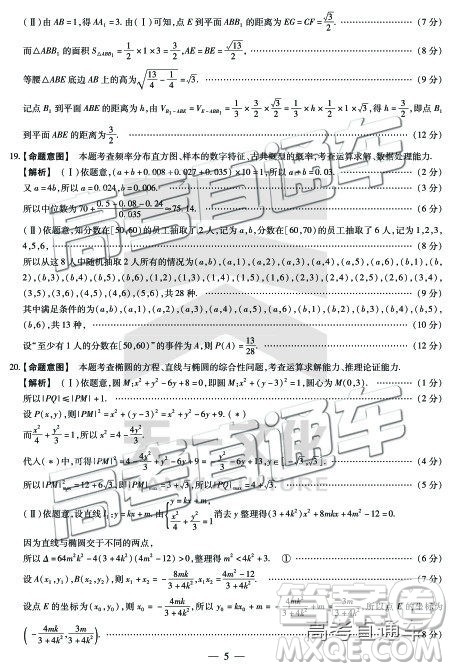 (Ⅱ)由 AB=1,得 AA₁=3. 由(Ⅰ)可知,点 E 到平面 ABB₁ 的距离为 EG=CF=√3/2. (7 分)
而△ABB₁ 的面积 S△ABB₁=1/2×1×3=3/2,AE=BE=√13/2, (8 分)
等腰△ABE 底边 AB 上的高为√(13/4-1/4)=√3. (9 分)
记点 B₁ 到平面 ABE 的距离为 h,由 V_{B₁-ABE}=V_{E-ABB₁}=1/3×3/2×√3/2=1/3×h×1/2×1×√3,得 h=3/2,即点 B₁
到平面 ABE 的距离为3/2. (12 分)
19.【命题意图】 本题考查频率分布直方图、样本的数字特征、古典概型的概率,考查运算求解、数据处理能力.
【解析】 (Ⅰ)依题意,(a+b+0.008+0.027+0.035)×10=1,所以 a+b=0.03. (2 分)
又 a=4b,所以 a=0.024,b=0.006. (4 分)
所以中位数为 70+(0.5-0.08-0.24)/0.035≈75.14. (6 分)
(Ⅱ)依题意,知分数在[50,60)的员工抽取了 2 人,记为 a,b,分数在[60,70)的员工抽取了 6 人,记为 1,2,3,
4,5,6, (8 分)
所以从这 8 人中随机抽取 2 人所有的情况为(a,b),(a,1),(a,2),(a,3),(a,4),(a,5),(a,6),(b,1),(b,
2),(b,3),(b,4),(b,5),(b,6),(1,2),(1,3),(1,4),(1,5),(1,6),(2,3),(2,4),(2,5),(2,6),(3,4)
(3,5),(3,6),(4,5),(4,6),(5,6),共 28 种. (9 分)
其中满足条件的为(a,b),(a,1),(a,2),(a,3),(a,4),(a,5),(a,6),(b,1),(b,2),(b,3),(b,4),(b,5),
(b,6),共 13 种, (10 分)
设“至少有 1 人的分数在[50,60)”的事件为 A,则 P(A)=13/28. (12 分)
20.【命题意图】 本题考查椭圆的方程、直线与椭圆的综合性问题,考查运算求解能力、推理论证能力.
【解析】 (Ⅰ)依题意,圆 M:x²+y²-6y+8=0,即圆 M:x²+(y-3)²=1,圆心为 M(0,3). (1 分)
所以|PQ|≤|PM|+1. (2 分)
设 P(x,y),则|PM|²=x²+(y-3)²=x²+y²-6y+9. (*) (3 分)
而x²/4+y²/3=1,所以 x²=4-4y²/3.
代入(*)中,可得|PM|²=4-4y²/3+y²-6y+9=-y²/3-6y+13,y∈[-√3,√3]. (4 分)
所以|PM|²max=12+6√3,即|PM|max=3+√3,所以|PQ|max=4+√3. (5 分)
(Ⅱ)依题意,设直线 l:y=kx+m,由{y=kx+m, x²/4+y²/3=1 消去 y 整理得(3+4k²)x²+8mkx+4m²-12=0.
因为直线与椭圆交于不同的两点,
所以 Δ=64m²k²-4(3+4k²)(4m²-12)>0,整理得 m²<4k²+3. ① (6 分)
设 A(x₁,y₁),B(x₂,y₂),则 x₁+x₂=-8mk/(3+4k²),x₁x₂=(4m²-12)/(3+4k²).
设点 E 的坐标为(x₀,y₀),则 x₀=-4mk/(3+4k²),所以 y₀=kx₀+m=-4mk²/(3+4k²)+m=3m/(3+4k²),所以点 E 的坐标为
(-4mk/(3+4k²),3m/(3+4k²)). (8 分)
— 5 —
高考直通车
高考直通车
高考直通车